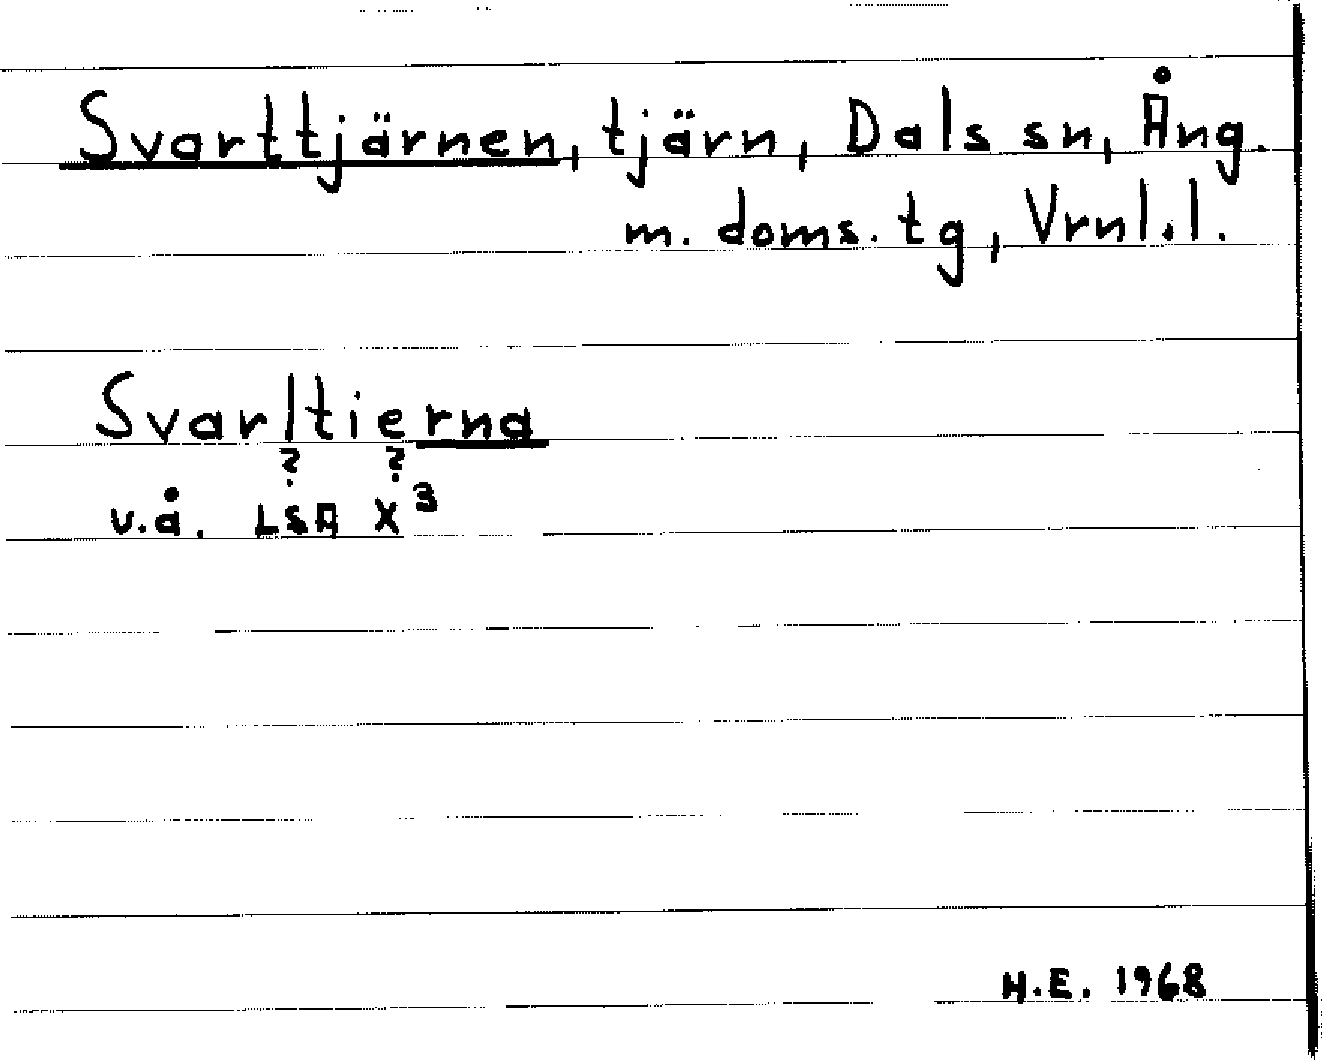 Svarttjärnen, tjärn, Dals sn, Ång.
m. doms. tg, Vrnl.l.
Svarltierna
? ?
v.å. LSA X³
H.E. 1968